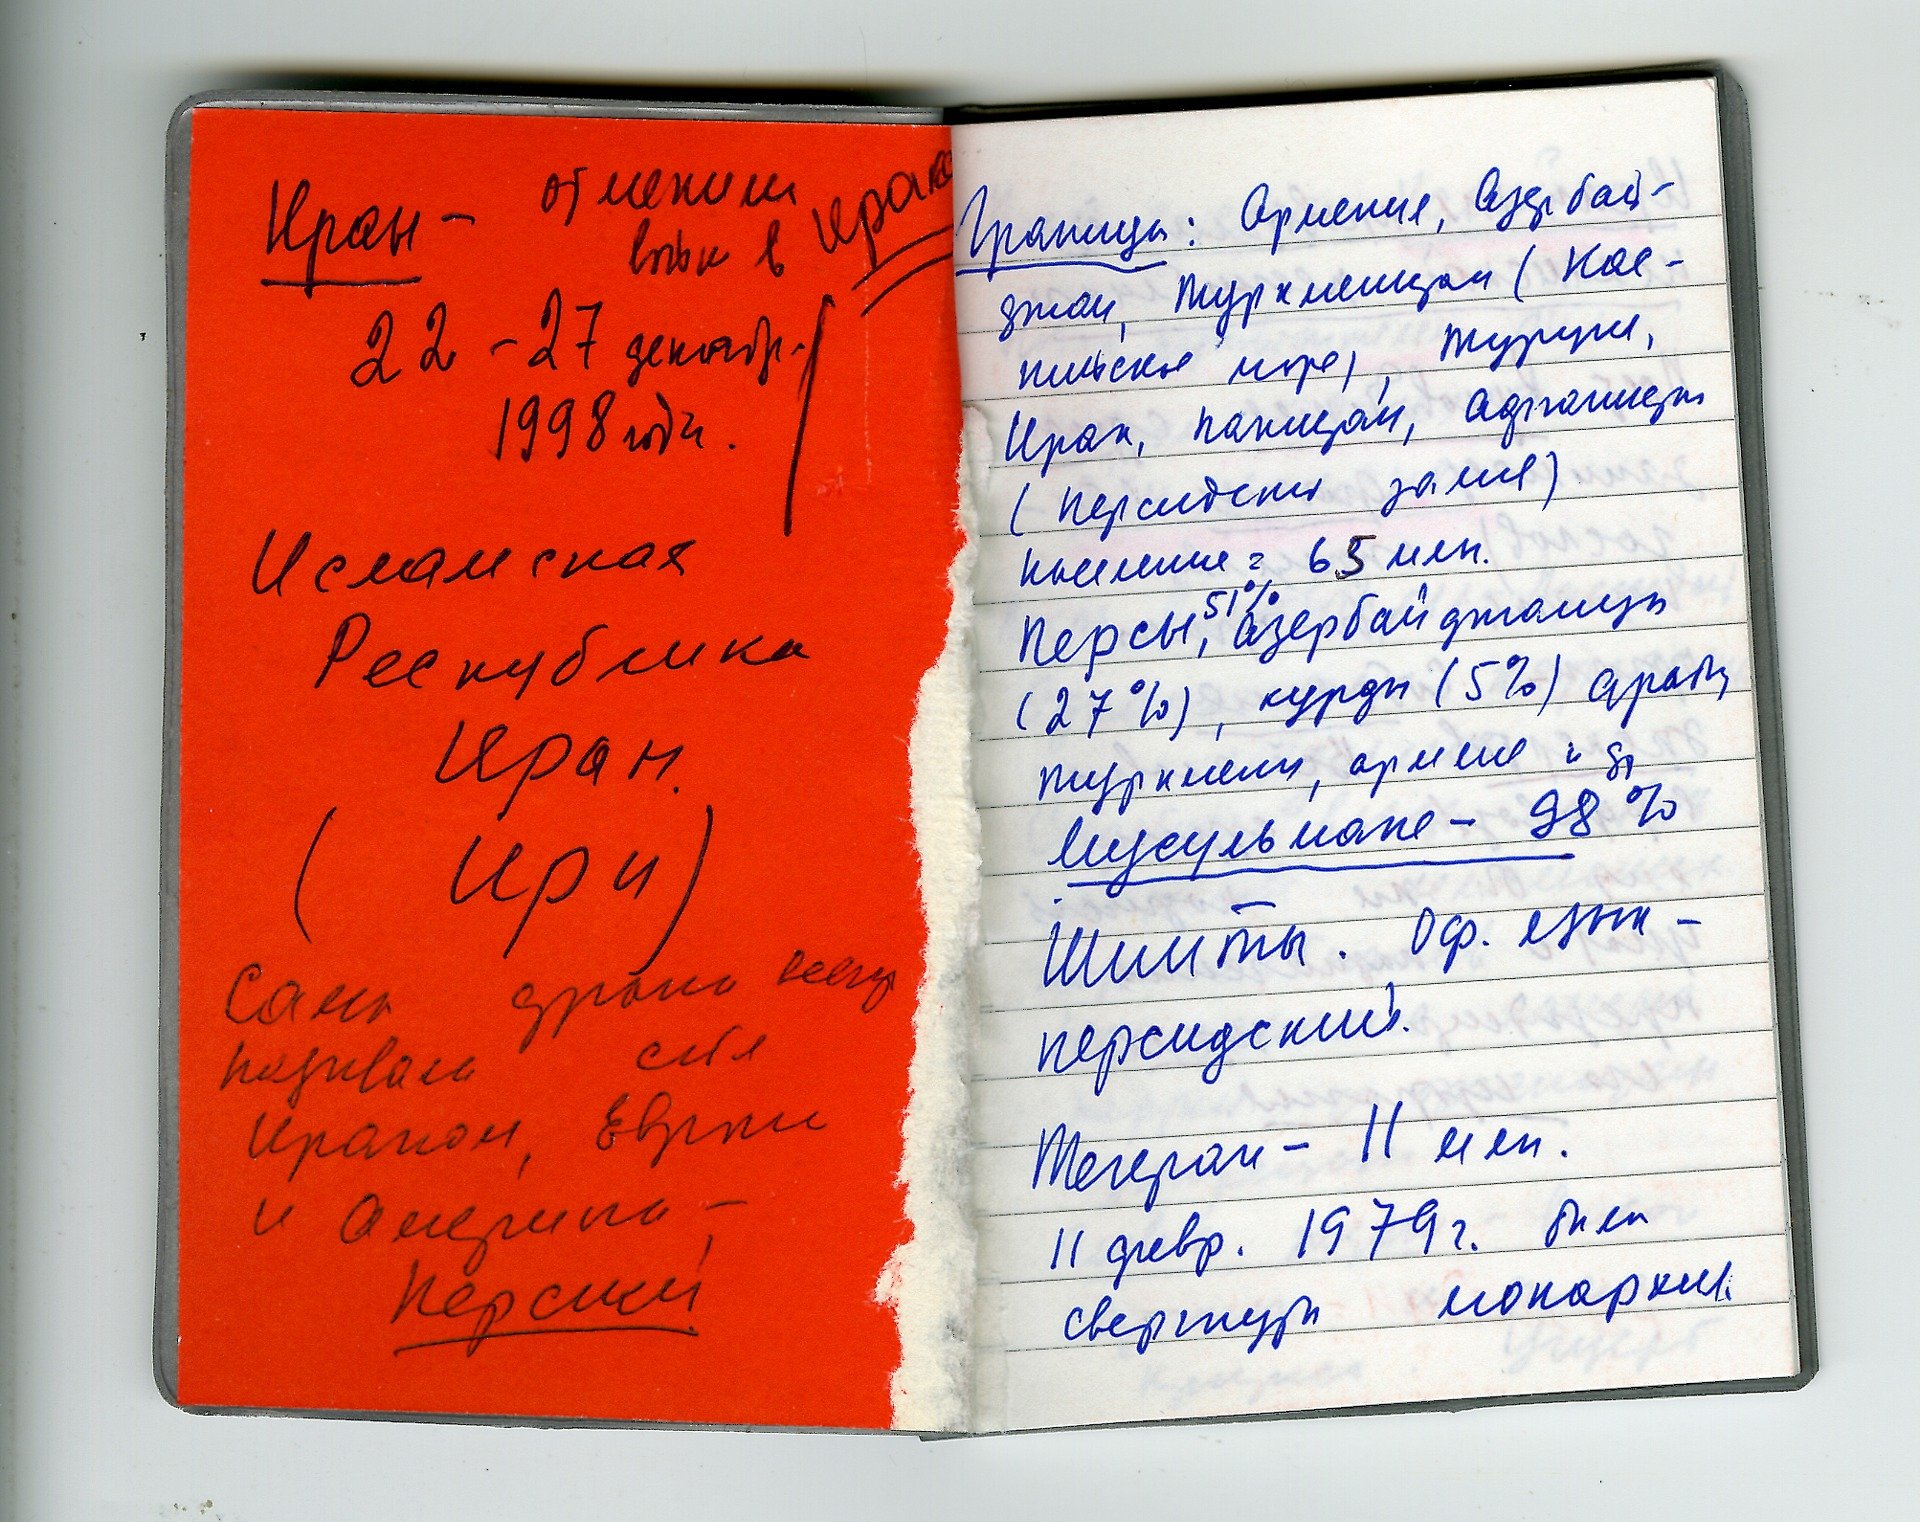 Иран –
отменили
вызов в Ираке
22 – 27 декабр.
1998 года.
Исламская
Республика
Иран.
(ИРИ)
Сами
называли себя
Ираном, Европа
и Америка –
Персией
Границы: Армения, Азербай-
джан, Туркменистан (Кас-
пийское море), Турция,
Ирак, Пакистан, Афганистан
(Персидский залив)
Население = 65 млн.
51%
Персы, азербайджанцы
(27%), курды (5%) арабы,
туркмены, армяне и др
Мусульмане – 98%
Шииты. Оф. язык –
персидский.
Тегеран – 11 млн.
11 февр. 1979 г. была
свергнута монархия.